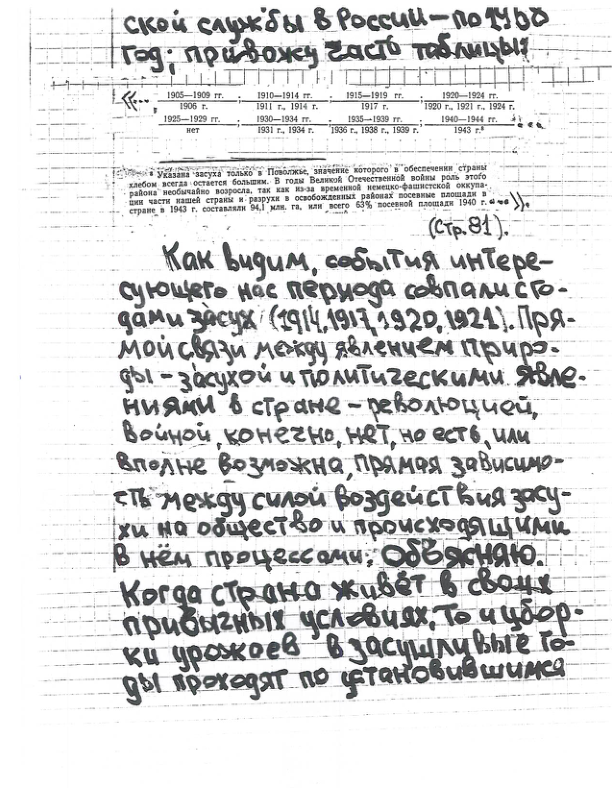 ской службы в России – по 1968
год; привожу часть таблицы:
«... 1905—1909 гг. ; 1910—1914 гг. ; 1915—1919 гг. ; 1920—1924 гг. ;
1906 г. 1911 г., 1914 г. 1917 г. 1920 г., 1921 г., 1924 г.
1925—1929 гг. ; 1930—1934 гг. ; 1935—1939 гг. ; 1940—1944 гг. ...
нет 1931 г., 1934 г. 1936 г., 1938 г., 1939 г. 1943 г.⁸
⁸ Указана засуха только в Поволжье, значение которого в обеспечении страны
хлебом всегда остается большим. В годы Великой Отечественной войны роль этого
района необычайно возросла, так как из-за временной немецко-фашистской оккупа-
ции части нашей страны и разрухи в освобожденных районах посевные площади в
стране в 1943 г. составляли 94,1 млн. га, или всего 63% посевной площади 1940 г. ...»
(стр. 81).
Как видим, события интере-
сующего нас периода совпали с го-
дами засух (1914, 1917, 1920, 1921). Пря-
мой связи между явлением приро-
ды – засухой и политическими явле-
ниями в стране – революцией,
войной, конечно, нет, но есть, или
вполне возможна, прямая зависимо-
сть между силой воздействия засу-
хи на общество и происходящими
в нём процессами. Объясняю.
Когда страна живёт в своих
привычных условиях, то и убор-
ки урожаев в засушливые го-
ды проходят по установившимся